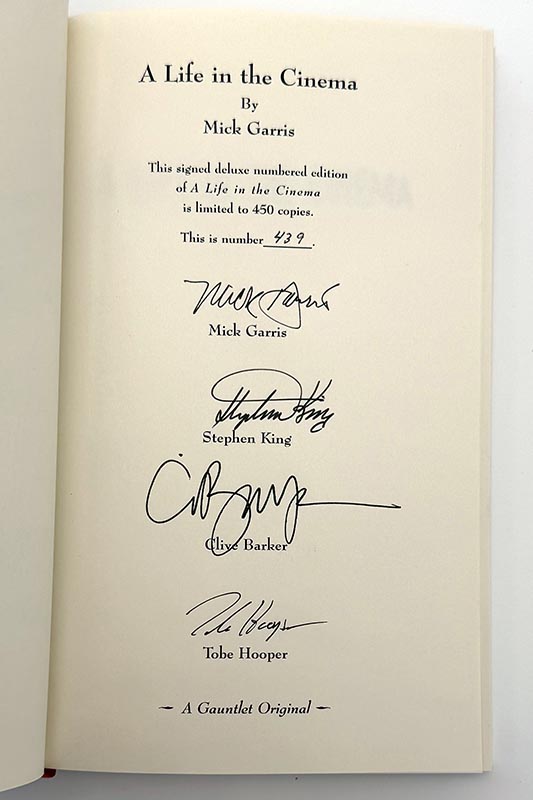 A Life in the Cinema
By
Mick Garris
This signed deluxe numbered edition
of A Life in the Cinema
is limited to 450 copies.
This is number 439.
Mick Garris
Mick Garris
Stephen King
Stephen King
Clive Barker
Tobe Hooper
Tobe Hooper
~ A Gauntlet Original ~